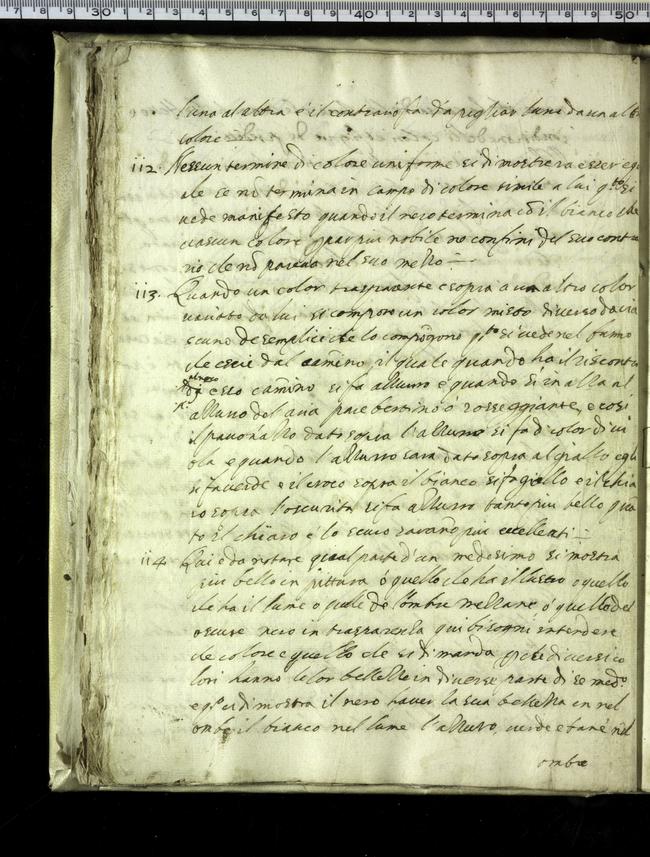 l'una al altra e il contrario fa da pigliar lume da un altro
colore
112. Nessun termine di colore uniforme si dimostrera esser egu
ale se nō termina in campo di colore simile a lui qsto si
vede manifesto quando il nero termina cō il bianco che
ciascun colore par piu nobile ne confini del suo contra
rio che nō parera nel suo mezzo
113. Quando un color trasparente e sopra a un altro color
variato da lui si compone un color misto diverso da cia
scuno de semplici che lo compōgono qsto si vede nel fumo
che esce dal camino, il quale quando ha il riscontro
al nero
di esso camino si fa azzurro e quando si inalza al
azzurro del aria pare berettino o rosseggiante, e così
il pavonazzo dato sopra l'azzurro si fa di color di vi
ola e quando l'azzurro sara dato sopra al giallo egli
si fa verde e il croco sopra il bianco si fa giallo e il chia
ro sopra l'oscurità si fa azzurro tanto piu bello quā
to il chiaro e lo scuro sarano piu eccellenti
114. Qui è da notare qual parte d'un medesimo si mostra
piu bello in pittura o quello che ha il lustro o quello
che ha il lume o quele de l'ombre mezzane o quello del
oscure vero in trasparenza qui bisogni intendere
che colore e quello che si dimanda perche diversi co
lori hanno le lor bellezze in diverse parte di se medo
e qsto ci dimostra il nero haver la sua bellezza in nel
ombre il bianco nel lume l'azzuro, verde e tané nel
ombre